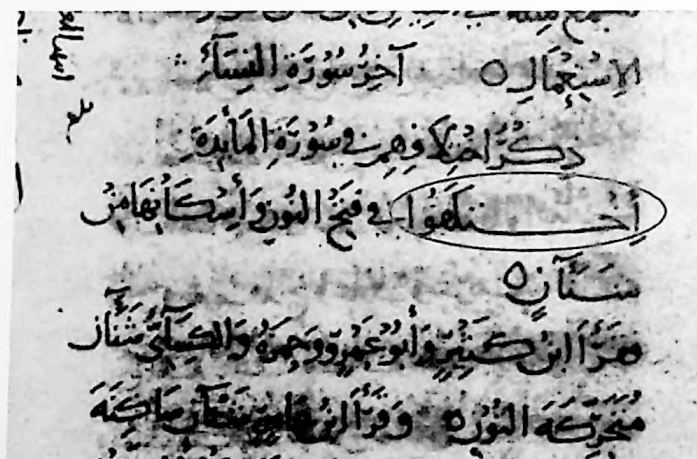 الاِسْتِعْمَالِ ٥ آخِرُ سُورَةِ النِّسَآءِ
ذِكْرُ اخْتِلَافِهِمْ فِي سُورَةِ المَائِدَةِ
اِخْتَلَفُوا فِي فَتْحِ النُّونِ وَأَسْكَانِهَا مِنْ
شَنَآنِ ٥
فقَرَأَ ابنُ كَثِيرٍ وَأَبُو عَمْرٍو وَحَمْزَةُ وَالكِسَآئِيُّ شَنَآنُ
مُتَحَرِّكَةَ النُّونِ ٥ وَقَرَأَ ابنُ عَامِرٍ شَنْآنُ سَاكِنَةَ